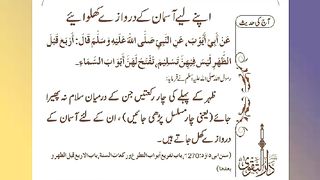 آج کی حدیث
اپنے لیے آسمان کے دروازے کھلوائیے
عَنْ أَبِي أَيُّوبَ، عَنِ النَّبِيِّ صَلَّى اللهُ عَلَيْهِ وَسَلَّمَ قَالَ: أَرْبَعٌ قَبْلَ
الظُّهْرِ لَيْسَ فِيهِنَّ تَسْلِيمٌ، تُفْتَحُ لَهُنَّ أَبْوَابُ السَّمَاءِ.
رسول اللہ صلی اللہ علیہ وسلم نے فرمایا:
ظہر کے پہلے کی چار رکعتیں جن کے درمیان سلام نہ پھیرا
جائے (یعنی چار مسلسل پڑھی جائیں)، ان کے لئے آسمان کے
دروازے کھل جاتے ہیں۔
(سنن ابی داؤد: 1270، باب تفریع ابواب التطوع ورکعات السنۃ، باب الاربع قبل الظہر و
بعدھا)
دار التقویٰ